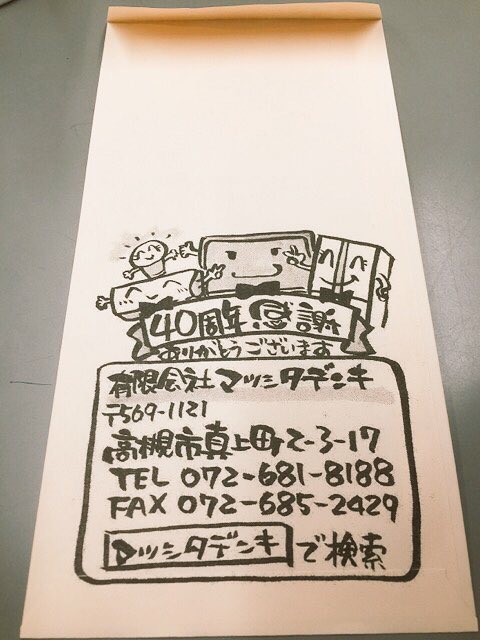 40周年 感謝
ありがとうございます
有限会社 マツシタデンキ
〒569-1121
高槻市真上町2-3-17
TEL 072-681-8188
FAX 072-685-2429
マツシタデンキ で検索